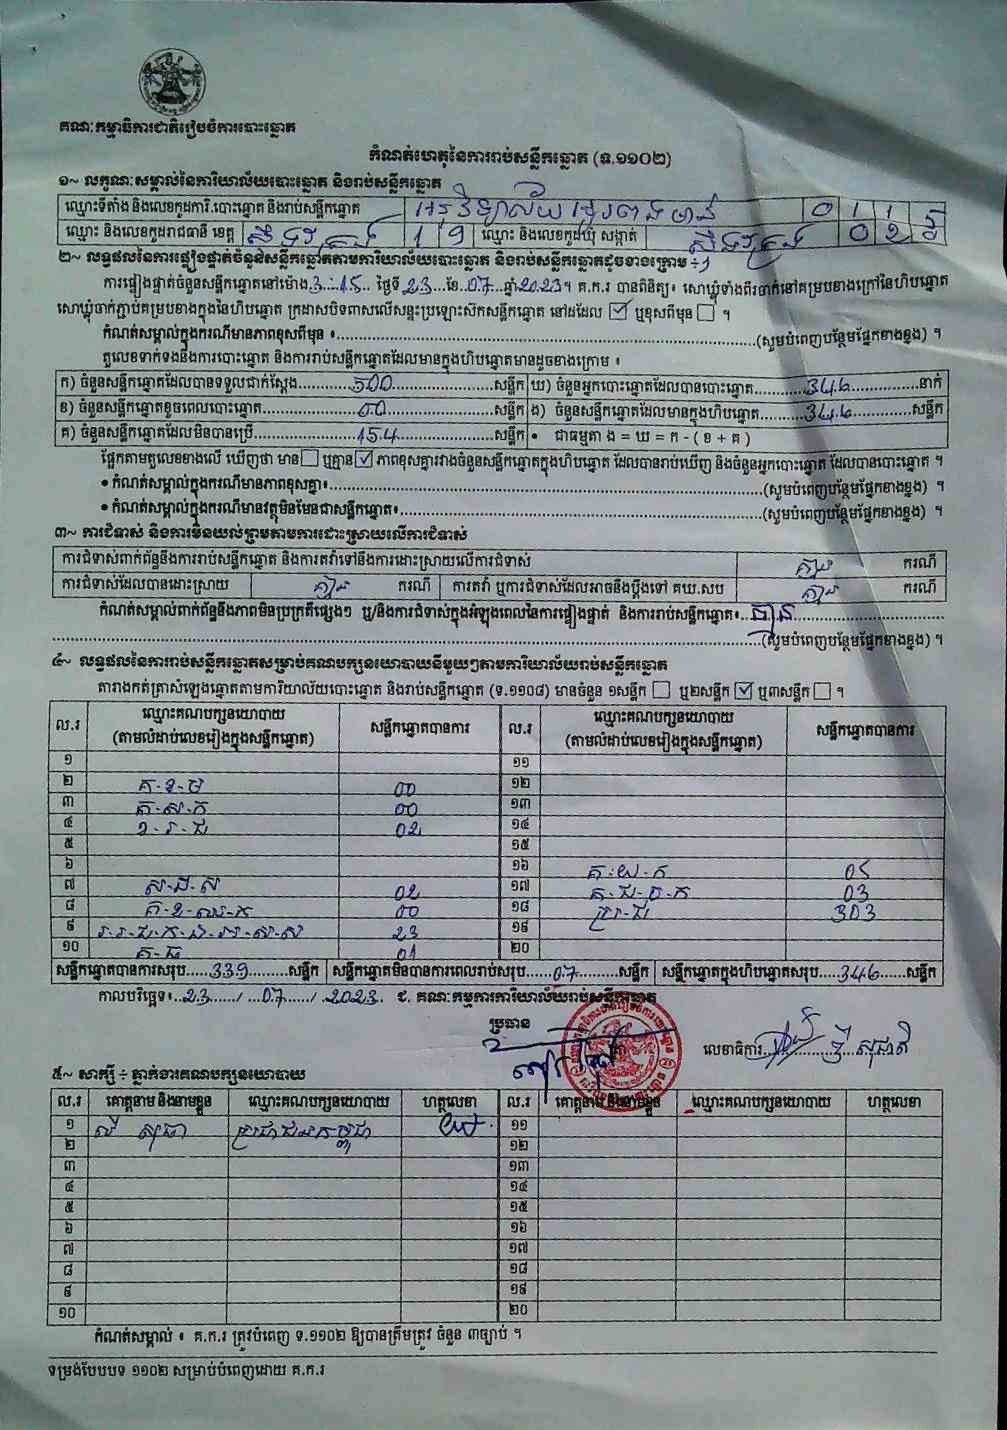 គណៈកម្មាធិការជាតិរៀបចំការបោះឆ្នោត
កំណត់ហេតុនៃការរាប់សន្លឹកឆ្នោត (ទ.១១០២)
១~ លក្ខណៈសម្គាល់នៃការិយាល័យបោះឆ្នោត និងរាប់សន្លឹកឆ្នោត
ឈ្មោះទីតាំង និងលេខកូដការិ.បោះឆ្នោត និងរាប់សន្លឹកឆ្នោត 0 1 1
ឈ្មោះ និងលេខកូដរាជធានី ខេត្ត ស្ទឹងត្រែង 1 9 ឈ្មោះ និងលេខកូដឃុំ សង្កាត់ ស្ទឹងត្រែង 0 2
២~ លទ្ធផលនៃការផ្ទៀងផ្ទាត់ចំនួនសន្លឹកឆ្នោតតាមការិយាល័យបោះឆ្នោត និងរាប់សន្លឹកឆ្នោតដូចខាងក្រោម ÷
ការផ្ទៀងផ្ទាត់ចំនួនសន្លឹកឆ្នោតនៅម៉ោង.3-15.. ថ្ងៃទី23..ខែ.07..ឆ្នាំ.2023។ គ.ក.រ បានពិនិត្យ៖ សោឃ្លុំទាំងពីរចាក់នៅគម្របខាងក្រៅនៃហិបឆ្នោត
សោឃ្លុំចាក់ភ្ជាប់គម្របខាងក្នុងនៃហិបឆ្នោត ក្រដាសបិទពាសលើសន្ទះប្រឡោះស៊កសន្លឹកឆ្នោត នៅដដែល ☑ ឬខុសពីមុន ☐ ។
កំណត់សម្គាល់ក្នុងករណីមានភាពខុសពីមុន ៖ (សូមបំពេញបន្ថែមផ្នែកខាងខ្នង) ។
តួលេខទាក់ទងនឹងការបោះឆ្នោត និងការរាប់សន្លឹកឆ្នោតដែលមានក្នុងហិបឆ្នោតមានដូចខាងក្រោម ៖
ក) ចំនួនសន្លឹកឆ្នោតដែលបានទទួលជាក់ស្តែង 500 សន្លឹក ឃ) ចំនួនអ្នកបោះឆ្នោតដែលបានបោះឆ្នោត 346 នាក់
ខ) ចំនួនសន្លឹកឆ្នោតខូចពេលបោះឆ្នោត 00 សន្លឹក ង) ចំនួនសន្លឹកឆ្នោតដែលមានក្នុងហិបឆ្នោត 346 សន្លឹក
គ) ចំនួនសន្លឹកឆ្នោតដែលមិនបានប្រើ 154 សន្លឹក • ជាធម្មតា ង = ឃ = ក - ( ខ + គ )
ផ្អែកតាមតួលេខខាងលើ ឃើញថា មាន ☐ ឬគ្មាន ☑ ភាពខុសគ្នារវាងចំនួនសន្លឹកឆ្នោតក្នុងហិបឆ្នោត ដែលបានរាប់ឃើញ និងចំនួនអ្នកបោះឆ្នោត ដែលបានបោះឆ្នោត ។
• កំណត់សម្គាល់ក្នុងករណីមានភាពខុសគ្នា៖ (សូមបំពេញបន្ថែមផ្នែកខាងខ្នង) ។
• កំណត់សម្គាល់ក្នុងករណីមានវត្ថុមិនមែនជាសន្លឹកឆ្នោត៖ (សូមបំពេញបន្ថែមផ្នែកខាងខ្នង) ។
៣~ ការជំទាស់ និងការមិនយល់ព្រមតាមការដោះស្រាយលើការជំទាស់
ការជំទាស់ពាក់ព័ន្ធនឹងការរាប់សន្លឹកឆ្នោត និងការតវ៉ាទៅនឹងការដោះស្រាយលើការជំទាស់ គ្មាន ករណី
ការជំទាស់ដែលបានដោះស្រាយ គ្មាន ករណី ការតវ៉ា ឬការជំទាស់ដែលអាចនឹងប្តឹងទៅ គឃ.សប គ្មាន ករណី
កំណត់សម្គាល់ពាក់ព័ន្ធនឹងភាពមិនប្រក្រតីផ្សេងៗ ឬ/និងការជំទាស់ក្នុងអំឡុងពេលនៃការផ្ទៀងផ្ទាត់ និងការរាប់សន្លឹកឆ្នោត៖ គ្មាន
(សូមបំពេញបន្ថែមផ្នែកខាងខ្នង) ។
៤~ លទ្ធផលនៃការរាប់សន្លឹកឆ្នោតសម្រាប់គណបក្សនយោបាយនីមួយៗតាមការិយាល័យរាប់សន្លឹកឆ្នោត
តារាងកត់ត្រាសំឡេងឆ្នោតតាមការិយាល័យបោះឆ្នោត និងរាប់សន្លឹកឆ្នោត (ទ.១១០៨) មានចំនួន ១សន្លឹក ☐ ឬ២សន្លឹក ☑ ឬ៣សន្លឹក ☐ ។
ល.រ ឈ្មោះគណបក្សនយោបាយ (តាមលំដាប់លេខរៀងក្នុងសន្លឹកឆ្នោត) សន្លឹកឆ្នោតបានការ ល.រ ឈ្មោះគណបក្សនយោបាយ (តាមលំដាប់លេខរៀងក្នុងសន្លឹកឆ្នោត) សន្លឹកឆ្នោតបានការ
១ ១១
២ គ-ខ-ម 00 ១២
៣ គ-ស-ក 00 ១៣
៤ ខ-រ-ជ 02 ១៤
៥ ១៥
៦ ១៦ គ-យ-ក 05
៧ ស-ជ-ស 02 ១៧ គ-ជ-ព-ក 03
៨ គ-ខ-ឈ-ក 00 ១៨ ប្រ-ជ 303
៩ 23 ១៩
១០ គ-ធ 01 ២០
សន្លឹកឆ្នោតបានការសរុប 339 សន្លឹក សន្លឹកឆ្នោតមិនបានការពេលរាប់សរុប 07 សន្លឹក សន្លឹកឆ្នោតក្នុងហិបឆ្នោតសរុប 346 សន្លឹក
កាលបរិច្ឆេទ៖ 23 / 07 / 2023 ជ. គណៈកម្មការការិយាល័យរាប់សន្លឹកឆ្នោត
ប្រធាន
លេខាធិការ
៥~ សាក្សី ÷ ភ្នាក់ងារគណបក្សនយោបាយ
ល.រ គោត្តនាម និងនាមខ្លួន ឈ្មោះគណបក្សនយោបាយ ហត្ថលេខា ល.រ គោត្តនាម និងនាមខ្លួន ឈ្មោះគណបក្សនយោបាយ ហត្ថលេខា
១ លី សុធា ប្រជាជនកម្ពុជា ១១
២ ១២
៣ ១៣
៤ ១៤
៥ ១៥
៦ ១៦
៧ ១៧
៨ ១៨
៩ ១៩
១០ ២០
កំណត់សម្គាល់ ៖ គ.ក.រ ត្រូវបំពេញ ទ.១១០២ ឱ្យបានត្រឹមត្រូវ ចំនួន ៣ច្បាប់ ។
ទម្រង់បែបបទ ១១០២ សម្រាប់បំពេញដោយ គ.ក.រ